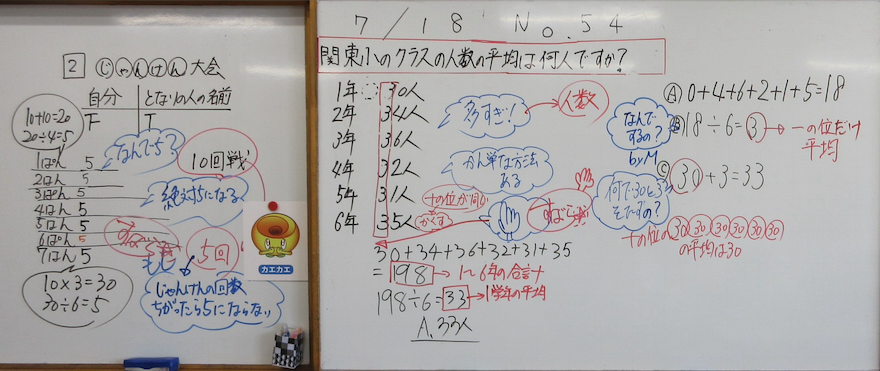 2 じゃんけん大会
自分 となりの人の名前
F T
10+10=20
20÷4=5
なんで5?
10回戦
1ぱん 5
2はん 5
3ぱん 5
4はん 5
5はん 5
6ぱん 5
7はん 5
絶対5になる
5回
カエカエ
もし
じゃんけんの回数
ちがったら5にならない
10×3=30
30÷6=5
7/18 No.54
関東小のクラスの人数の平均は何人ですか?
1年 30人
2年 34人
3年 36人
4年 32人
5年 31人
6年 35人
多すぎ!
人数
かん単な方法
ある
十の位が同じ
かくす
30+34+36+32+31+35
=198→1~6年の合計
198÷6=33→1学年の平均
A.33人
なんで
するの?
byM
何で30と3
をたすの?
Ⓐ0+4+6+2+1+5=18
Ⓑ18÷6=3→一の位だけ
平均
Ⓒ30+3=33
十の位の30 30 30 30 30 30
の平均は30